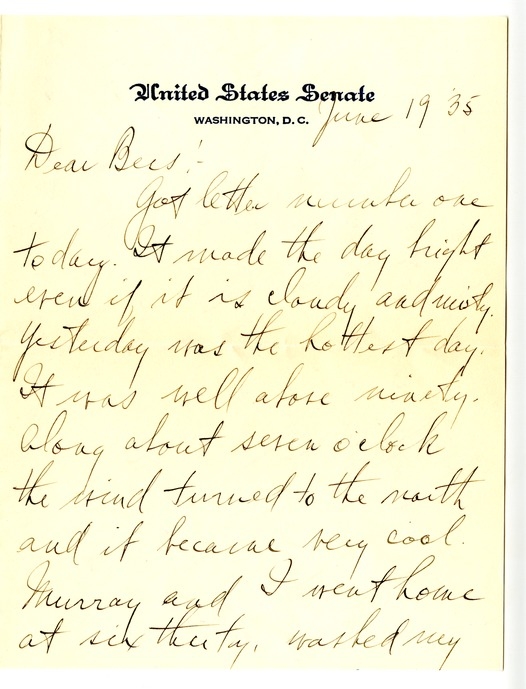 United States Senate
WASHINGTON, D. C.
June 19 '35
Dear Bess:-
Got letter number one
today. It made the day bright
even if it is cloudy and misty.
Yesterday was the hottest day.
It was well above ninety.
Along about seven o'clock
the wind turned to the north
and it became very cool.
Murray and I went home
at six thirty, washed my